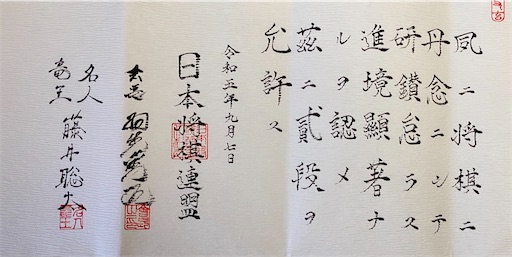 夙ニ将棋ニ
丹念ニシテ
研鑽怠ラス
進境顯著ナ
ルヲ認メ
茲ニ貳段ヲ
允許ス
令和五年九月七日
日本将棋連盟
会長 羽生善治
名人
竜王 藤井聡太